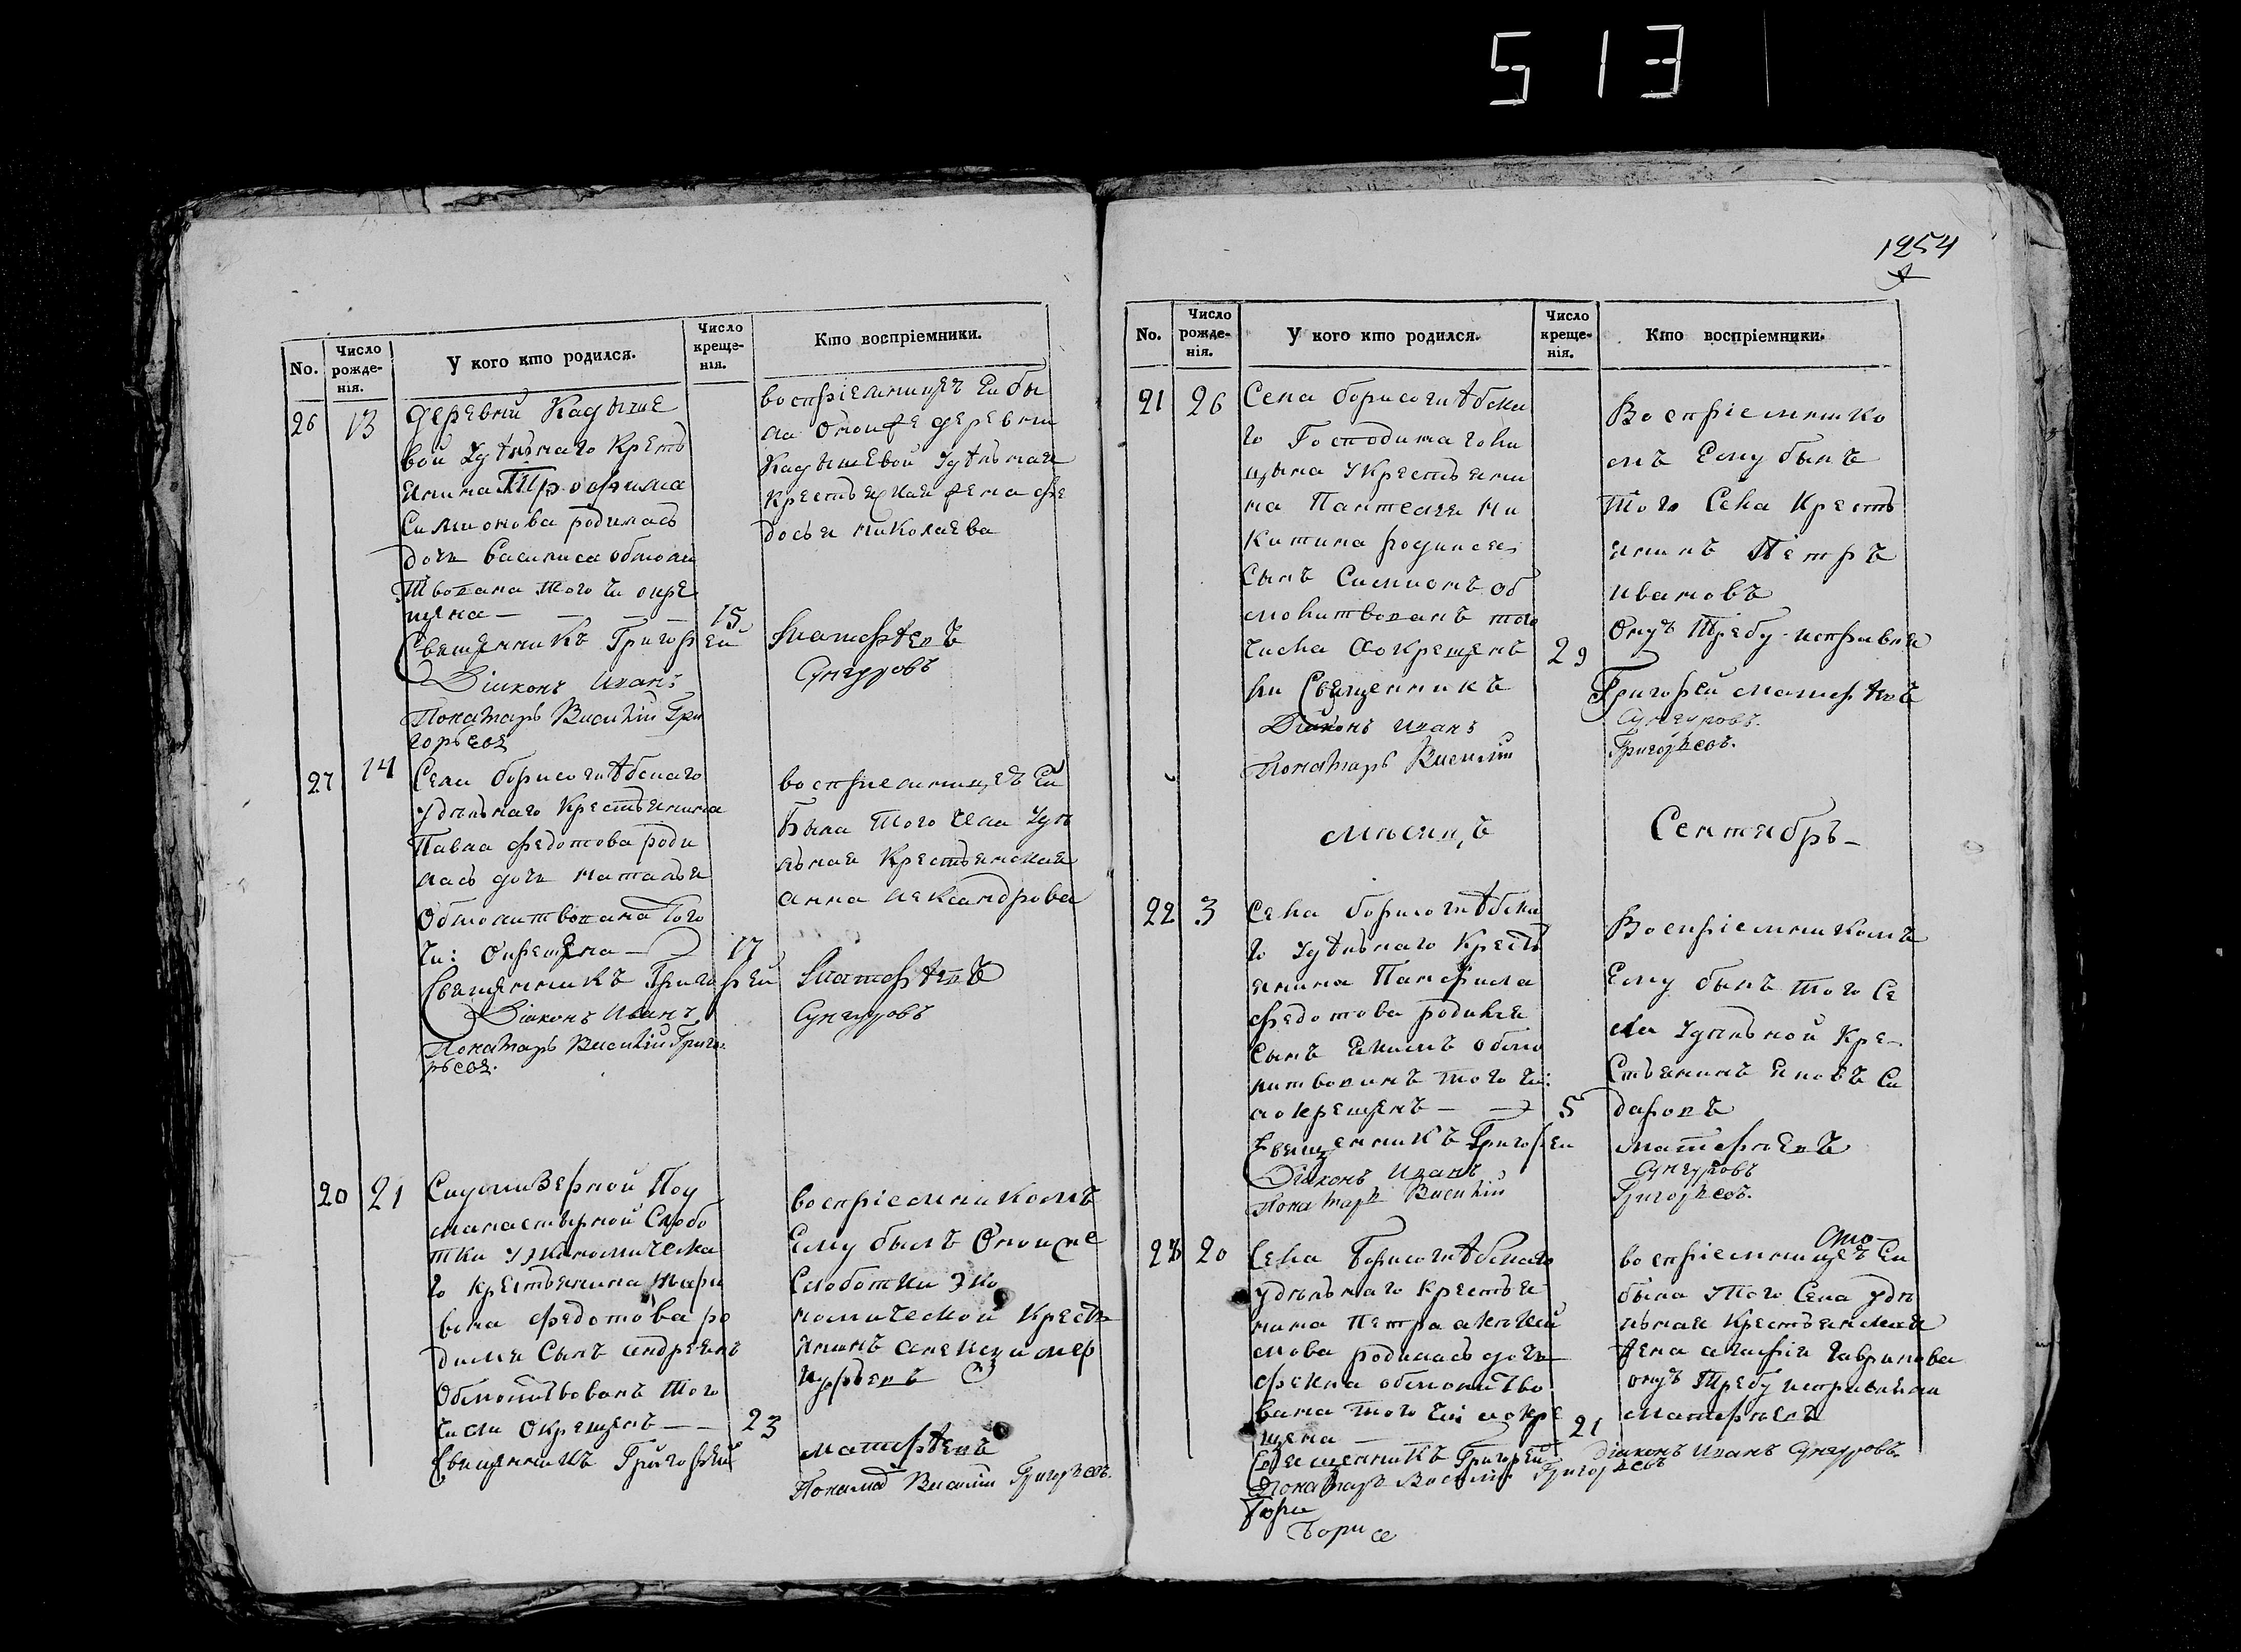 513
1254
No.
Число рожде-нія.
У кого кто родился.
Число креще-нія.
Кто воспріемники.
26
13
деревни Кадыше
вой Удѣльнаго Кресть
янина Трофима
Симионова родилась
дочь Василиса обмоли
твована того чи окре
щена —
15
Священникъ Григорей
Діаконъ Иванъ
Пономарь Василій Гри
горьевъ
воспріемницеч Ей бы
ла
деревни
Кадышевой Удѣльная
крестьянская жена Фе
досья Николаева
Матфѣевъ
Сунгуровъ
27
14
Села борисоглѣбскаго
удѣльнаго Крестьянина
Павла Федотова роди
лась дочь Наталья
Обмолитвована того
чи: Окрещена —
17
Священникъ Григорей
Діаконъ Иванъ
Пономарь Василій Григо
рьевъ.
воспріемницеъ Ей
Была того села Удѣ
льная Крестьянская
Анна Александрова
Матфѣевъ
Сунгуровъ
20
21
манастырной Слобо
тки
го крестьянина
Федотова ро
дился Сынъ Андреянъ
Обмолитвованъ того
числа Окрещенъ —
23
Священникъ Григорей
воспріемникомъ
Ему былъ Оной же
Слоботки Эко
номической Кресть
янинъ
Матфѣевъ
Василій Григорьевъ.
No.
Число рожде-нія.
У кого кто родился.
Число креще-нія.
Кто воспріемники.
21
26
Села борисоглѣбска
го Господина Голи
цына У Крестьяни
на Пантелея Ни
китина родился
Сынъ Симионъ об
молитвованъ того
числа Аокрещенъ
29
Священникъ
Діаконъ Иванъ
Пономарь Василій
Воспріемнико
мъ Ему былъ
того Села Кресть
янинъ Петръ
Ивановъ
Ону Требу исправлял
Григорей Матфѣевъ
Сунгуровъ.
Григорьевъ.
мѣсяцъ
Сентябрь —
22
3
Села борисоглѣбска
го Удѣльнаго Кресть
янина Панфила
Федотова родился
Сынъ Якимъ обмо
литвованъ того чи:
аокрещенъ —
5
Священникъ Григорей
Діаконъ Иванъ
Пономарь Василій
Воспріемникомъ
Ему былъ того Се
ла Удѣльной Кре-
стьянинъ Яковъ Си
даровъ
Матфѣевъ
Сунгуровъ
Григорьевъ.
23
20
Села Борисоглѣбскаго
удѣльнаго крестья
нина Петра
родилась дочь
Фекла обмолитво
вана того чи: аокре
щена —
21
Священникъ Григорей
Пономарь Василій Григорьевъ
воспріемницеъ Ей
была того Села удѣ
льная Крестьянская
жена
Гаврилова
ону Требу исправляли
Матфѣевъ
Діаконъ Иванъ Сунгуровъ.
Бори
Борисо